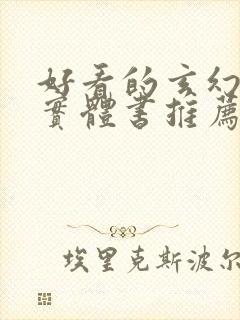 好看的玄幻
實體書推薦
埃里克斯波尔